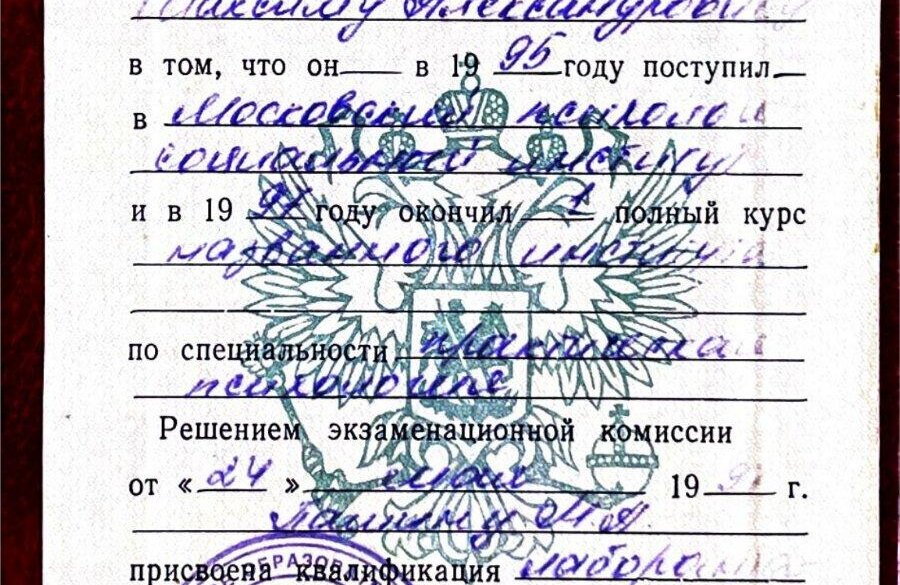 Максиму Александровичу
в том, что он в 19 95 году поступил
в Московский психолого
социальный институт
и в 19 году окончил 1 полный курс
названного института
по специальности практическая
психология
Решением экзаменационной комиссии
от « 24 » мая 19 9 г.
М А
присвоена квалификация
ОБРАЗОВ